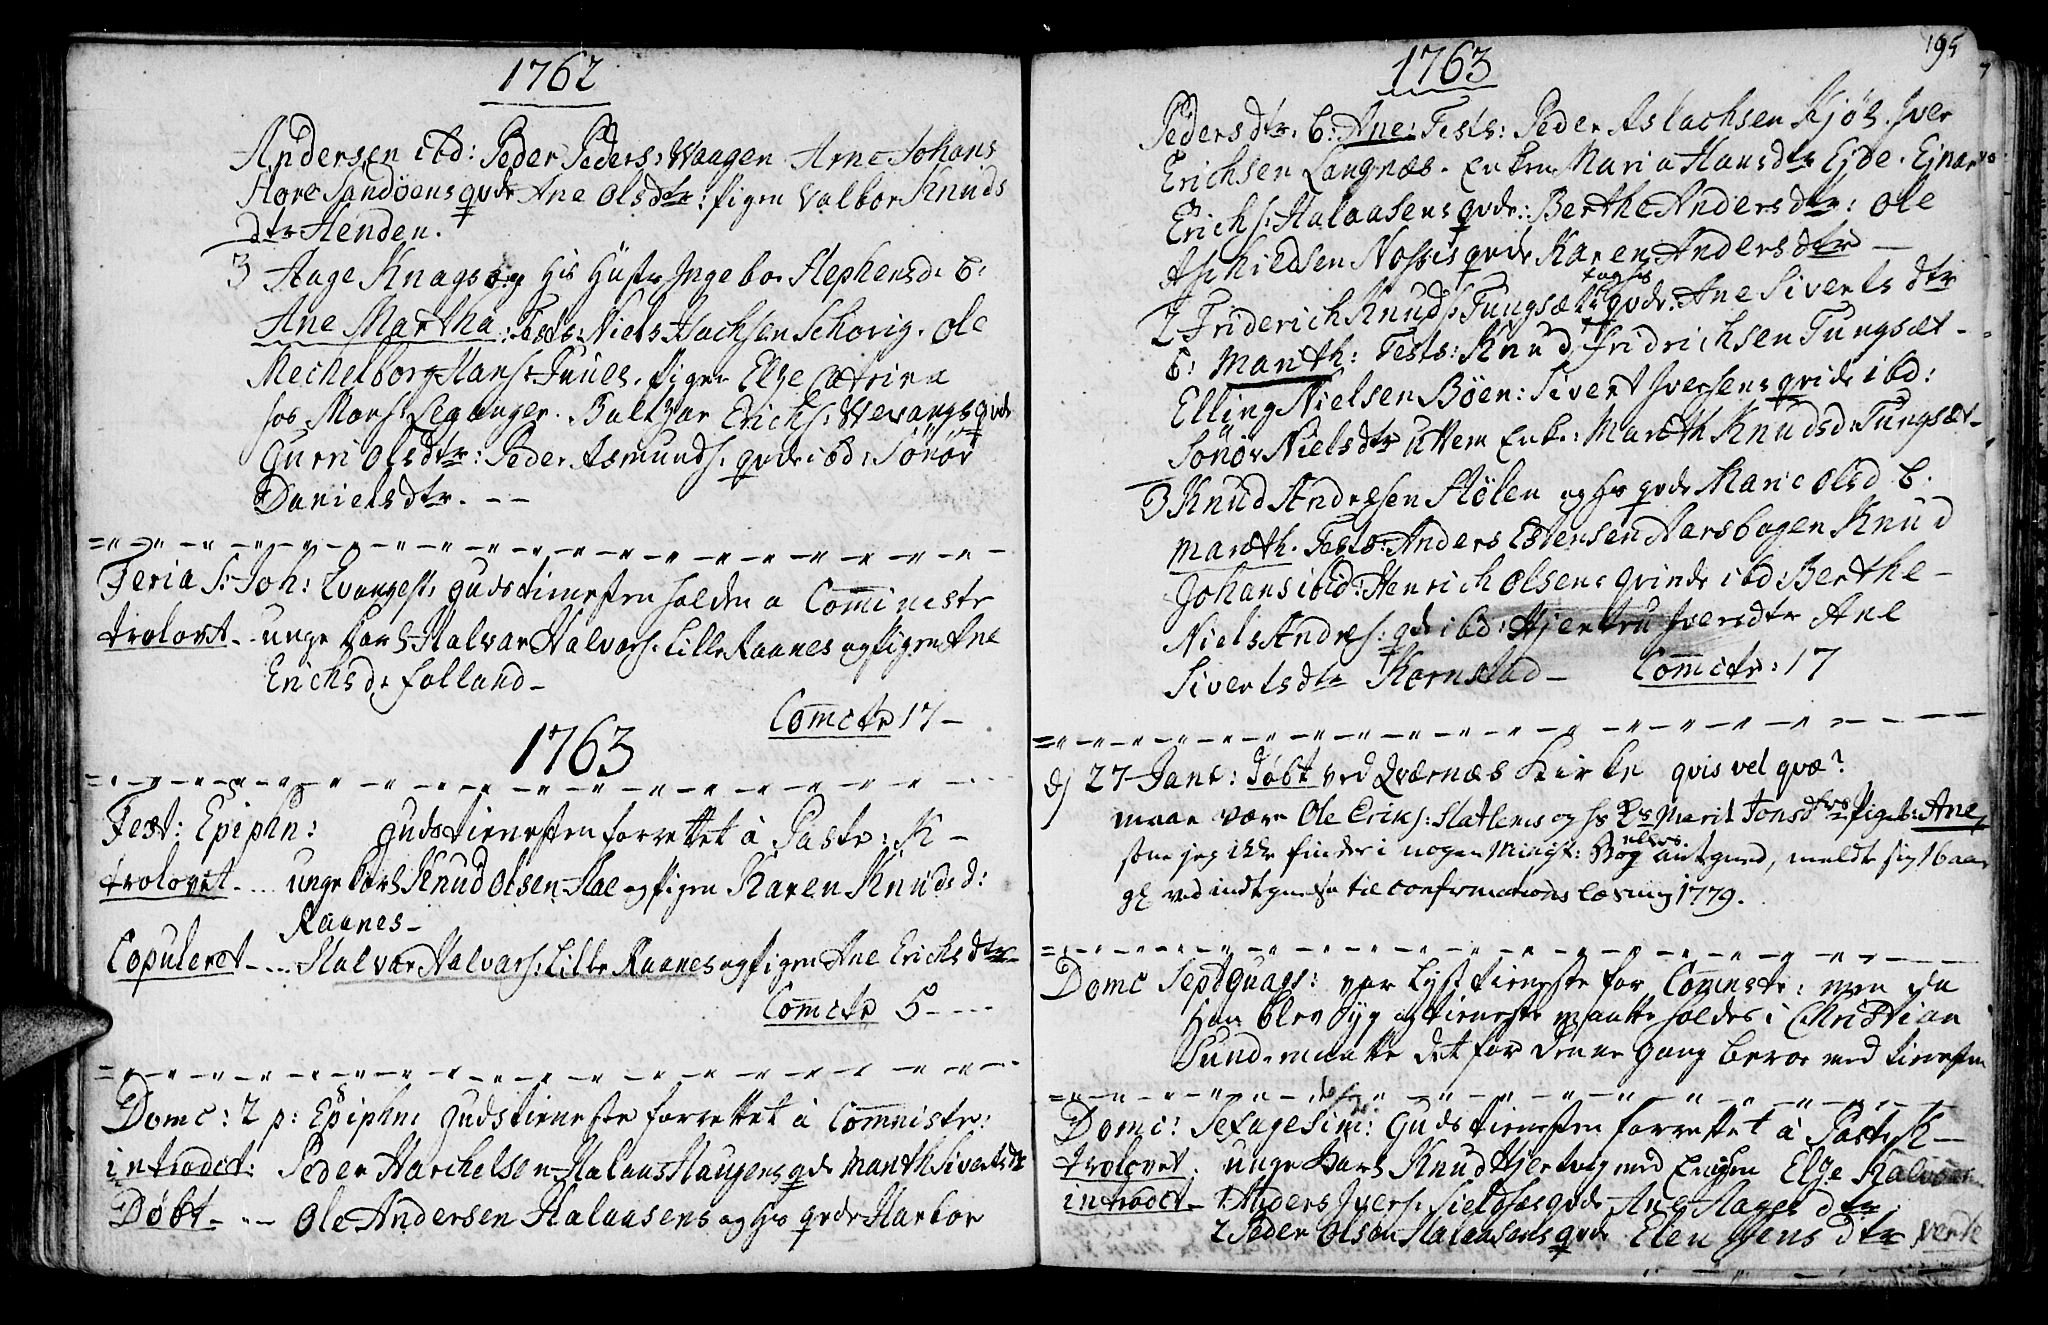 1762
Andersen ibd: Peder Peders: Waagen Arne Johans
Hore Sandøens qvde Ane Olsdtr: Pigen Valbor Knuds
dtr Henden.
3 Aage Knags og His Hustr Ingebor Stephensd. b:
Ane Martha. Tests: Niels Isachsen Schovig. Ole
Mechelborg Hans Juul. Pigen Else Catrina
hos Mons: Leganger. Baltzer Erichs: Wevangs qvde
Gurri Olsdtr: Peder Asmunds. qvde ibd: Sønøv
Danielsdtr. - -
Feria S: Joh: Evangelst. Gudstienesten holden a Cominestr
trolovet - unge Karl Halvar Halvars: Lille Raanes og Pigen Ane
Erichsd. Folland -
Comctr 17 -
1763
Fest: Epiphn: Gudstienesten forrettet à Pastr: K -
trolovet - ... unge Karl Knud Olsen Hae og Pigen Karen Knudsd:
Raanes -
Copuleret - ... Halvar Halvars: Lille Raanes og Pigen Ane Erichsdtr
Comctr 5 - - -
Domc: 2 p: Epiphn: Gudstieneste forrettet à Comnistr:
introdct: Peder Harchelsen Halaas Haugens qvde Marith Sivertsdtr
Døbt - .. - Ole Andersen Halaasens og his qvde Marbor
1763
195
Pedersdtr. b: Ane: Tests: Peder Aslachsen Kjøl. Iver
Erichsen Langnæs. Enken Maria Hansdtr Eide. Ejnar
Erichs: Halaasens qvde: Berthe Andersdtr: Ole
Aschildsen Nosis qvde Karen Andersdtr -
2 Friderich Knuds Tungsæt og his qvde: Ane Siverts dtr
b: Marith: Tests: Knud Fridrichsen Tungsæt -
Elling Nielsen Bøen: Sivert Iversens qvide ibd:
Sønøv Nielsdtr Uttem Enke: Marith Knudsd: Tungsæt -
3 Knud Andersen Stølen og his qvde Marie Olsd b:
Marith. Tests: Anders Estensen Aarsbogen Knud
Johans ibid: Henrich Olsens qvinde ibd: Berthe -
Niels Andrs: qde ibd: Hjertru Iversdtr Ane
Sivertsdtr Kornstad - Comctr: 17
d) 27 Janr: døbt ved Qvernæs Kirke qvis vel qvæ?
maae være Ole Eriks: Slatlems og hs Ks Marit Jonsdtrs Pigeb: Ane,
som jeg ikke finder i nogen Minist: Bog ellers antegned, meldte sig 16 aar
gl ved indtegnelse til confirmations læsning 1779.
Domc Septquags: var Lyst tieneste for Comnstr: men da
Han blev syg og tieneste maatte holdes i Christian
Sund. maatte det for denne gang beroe med tienesten
Domc: Sexagesim: Gudstienesten forrettet à Pastr K -
trolovet. unge Karl Knud Hjertvig med Enken Else
introdct - 1 Anders Ivers: qvde Ane Aages dtr.
2 Peder Olsen Halaasens qvde Elen Jens dtr verte